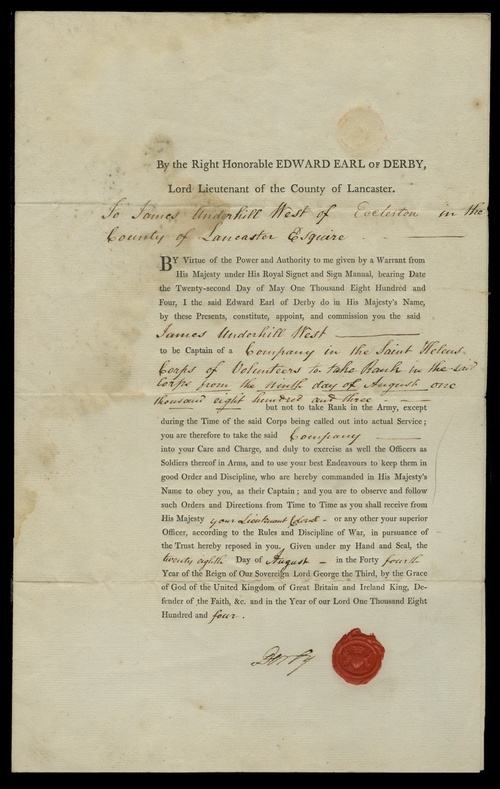 By the Right Honorable EDWARD EARL OF DERBY,
Lord Lieutenant of the County of Lancaster.
To James Underhill West of Eccleston in the
County of Lancaster Esquire
BY Virtue of the Power and Authority to me given by a Warrant from
His Majesty under His Royal Signet and Sign Manual, bearing Date
the Twenty-second Day of May One Thousand Eight Hundred and
Four, I the said Edward Earl of Derby do in His Majesty's Name,
by these Presents, constitute, appoint, and commission you the said
James Underhill West
to be Captain of a Company in the Saint Helens
Corps of Volunteers to take Rank in the said
Corps from the ninth day of August one
thousand eight hundred and three
but not to take Rank in the Army, except
during the Time of the said Corps being called out into actual Service;
you are therefore to take the said Company
into your Care and Charge, and duly to exercise as well the Officers as
Soldiers thereof in Arms, and to use your best Endeavours to keep them in
good Order and Discipline, who are hereby commanded in His Majesty's
Name to obey you, as their Captain; and you are to observe and follow
such Orders and Directions from Time to Time as you shall receive from
His Majesty your Lieutenant Colonel - or any other your superior
Officer, according to the Rules and Discipline of War, in pursuance of
the Trust hereby reposed in you. Given under my Hand and Seal, the
twenty eighth Day of August - in the Forty fourth
Year of the Reign of Our Sovereign Lord George the Third, by the Grace
of God of the United Kingdom of Great Britain and Ireland King, De-
fender of the Faith, &c. and in the Year of our Lord One Thousand Eight
Hundred and four.
Derby